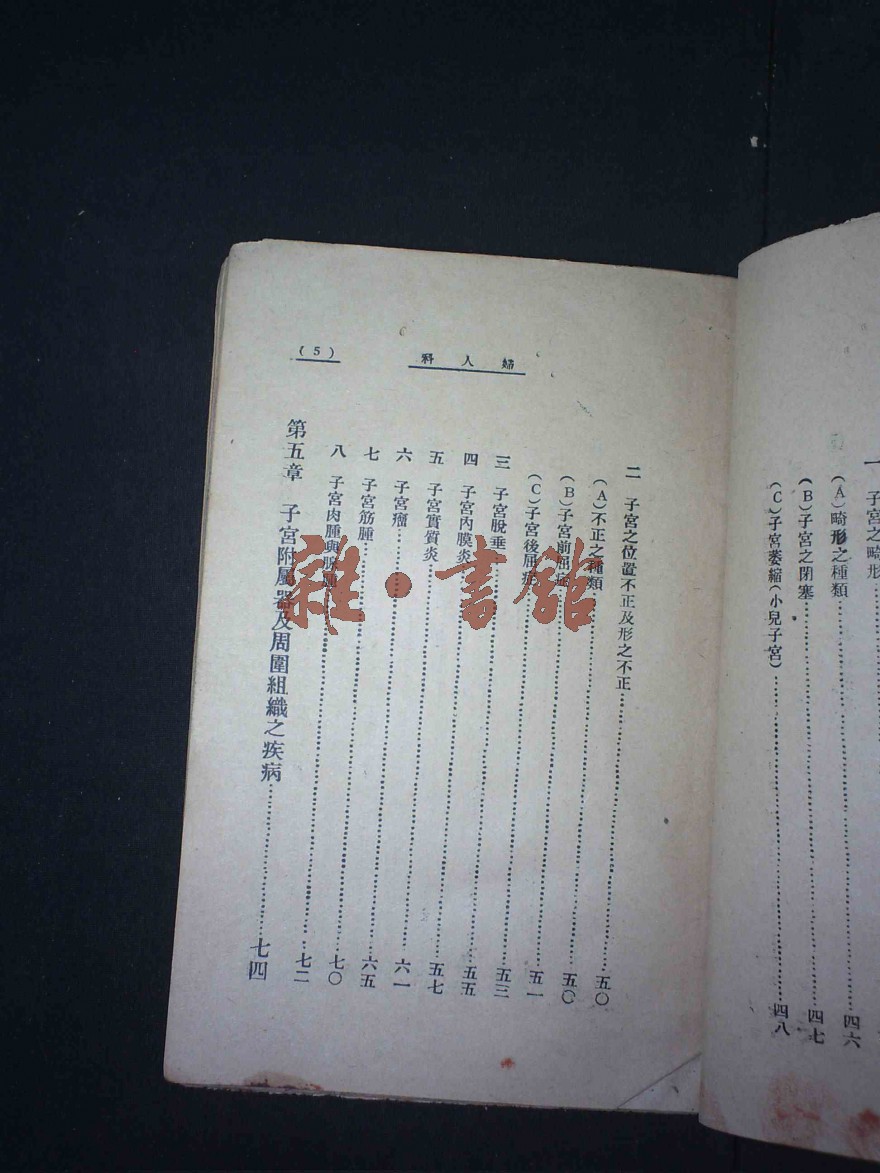 一 子宮之畸形
(A)畸形之種類……四六
(B)子宮之閉塞……四七
(C)子宮萎縮(小兒子宮)……四八
婦人科
(5)
二 子宮之位置不正及形之不正……五〇
(A)不正之種類……五〇
(B)子宮前屈症……五一
(C)子宮後屈症……五三
三 子宮脫垂……五五
四 子宮內膜炎……五七
五 子宮實質炎……六一
六 子宮瘤……六五
七 子宮筋腫……七〇
八 子宮肉腫與……七二
第五章 子宮附屬器及周圍組織之疾病……七四
雜·書館